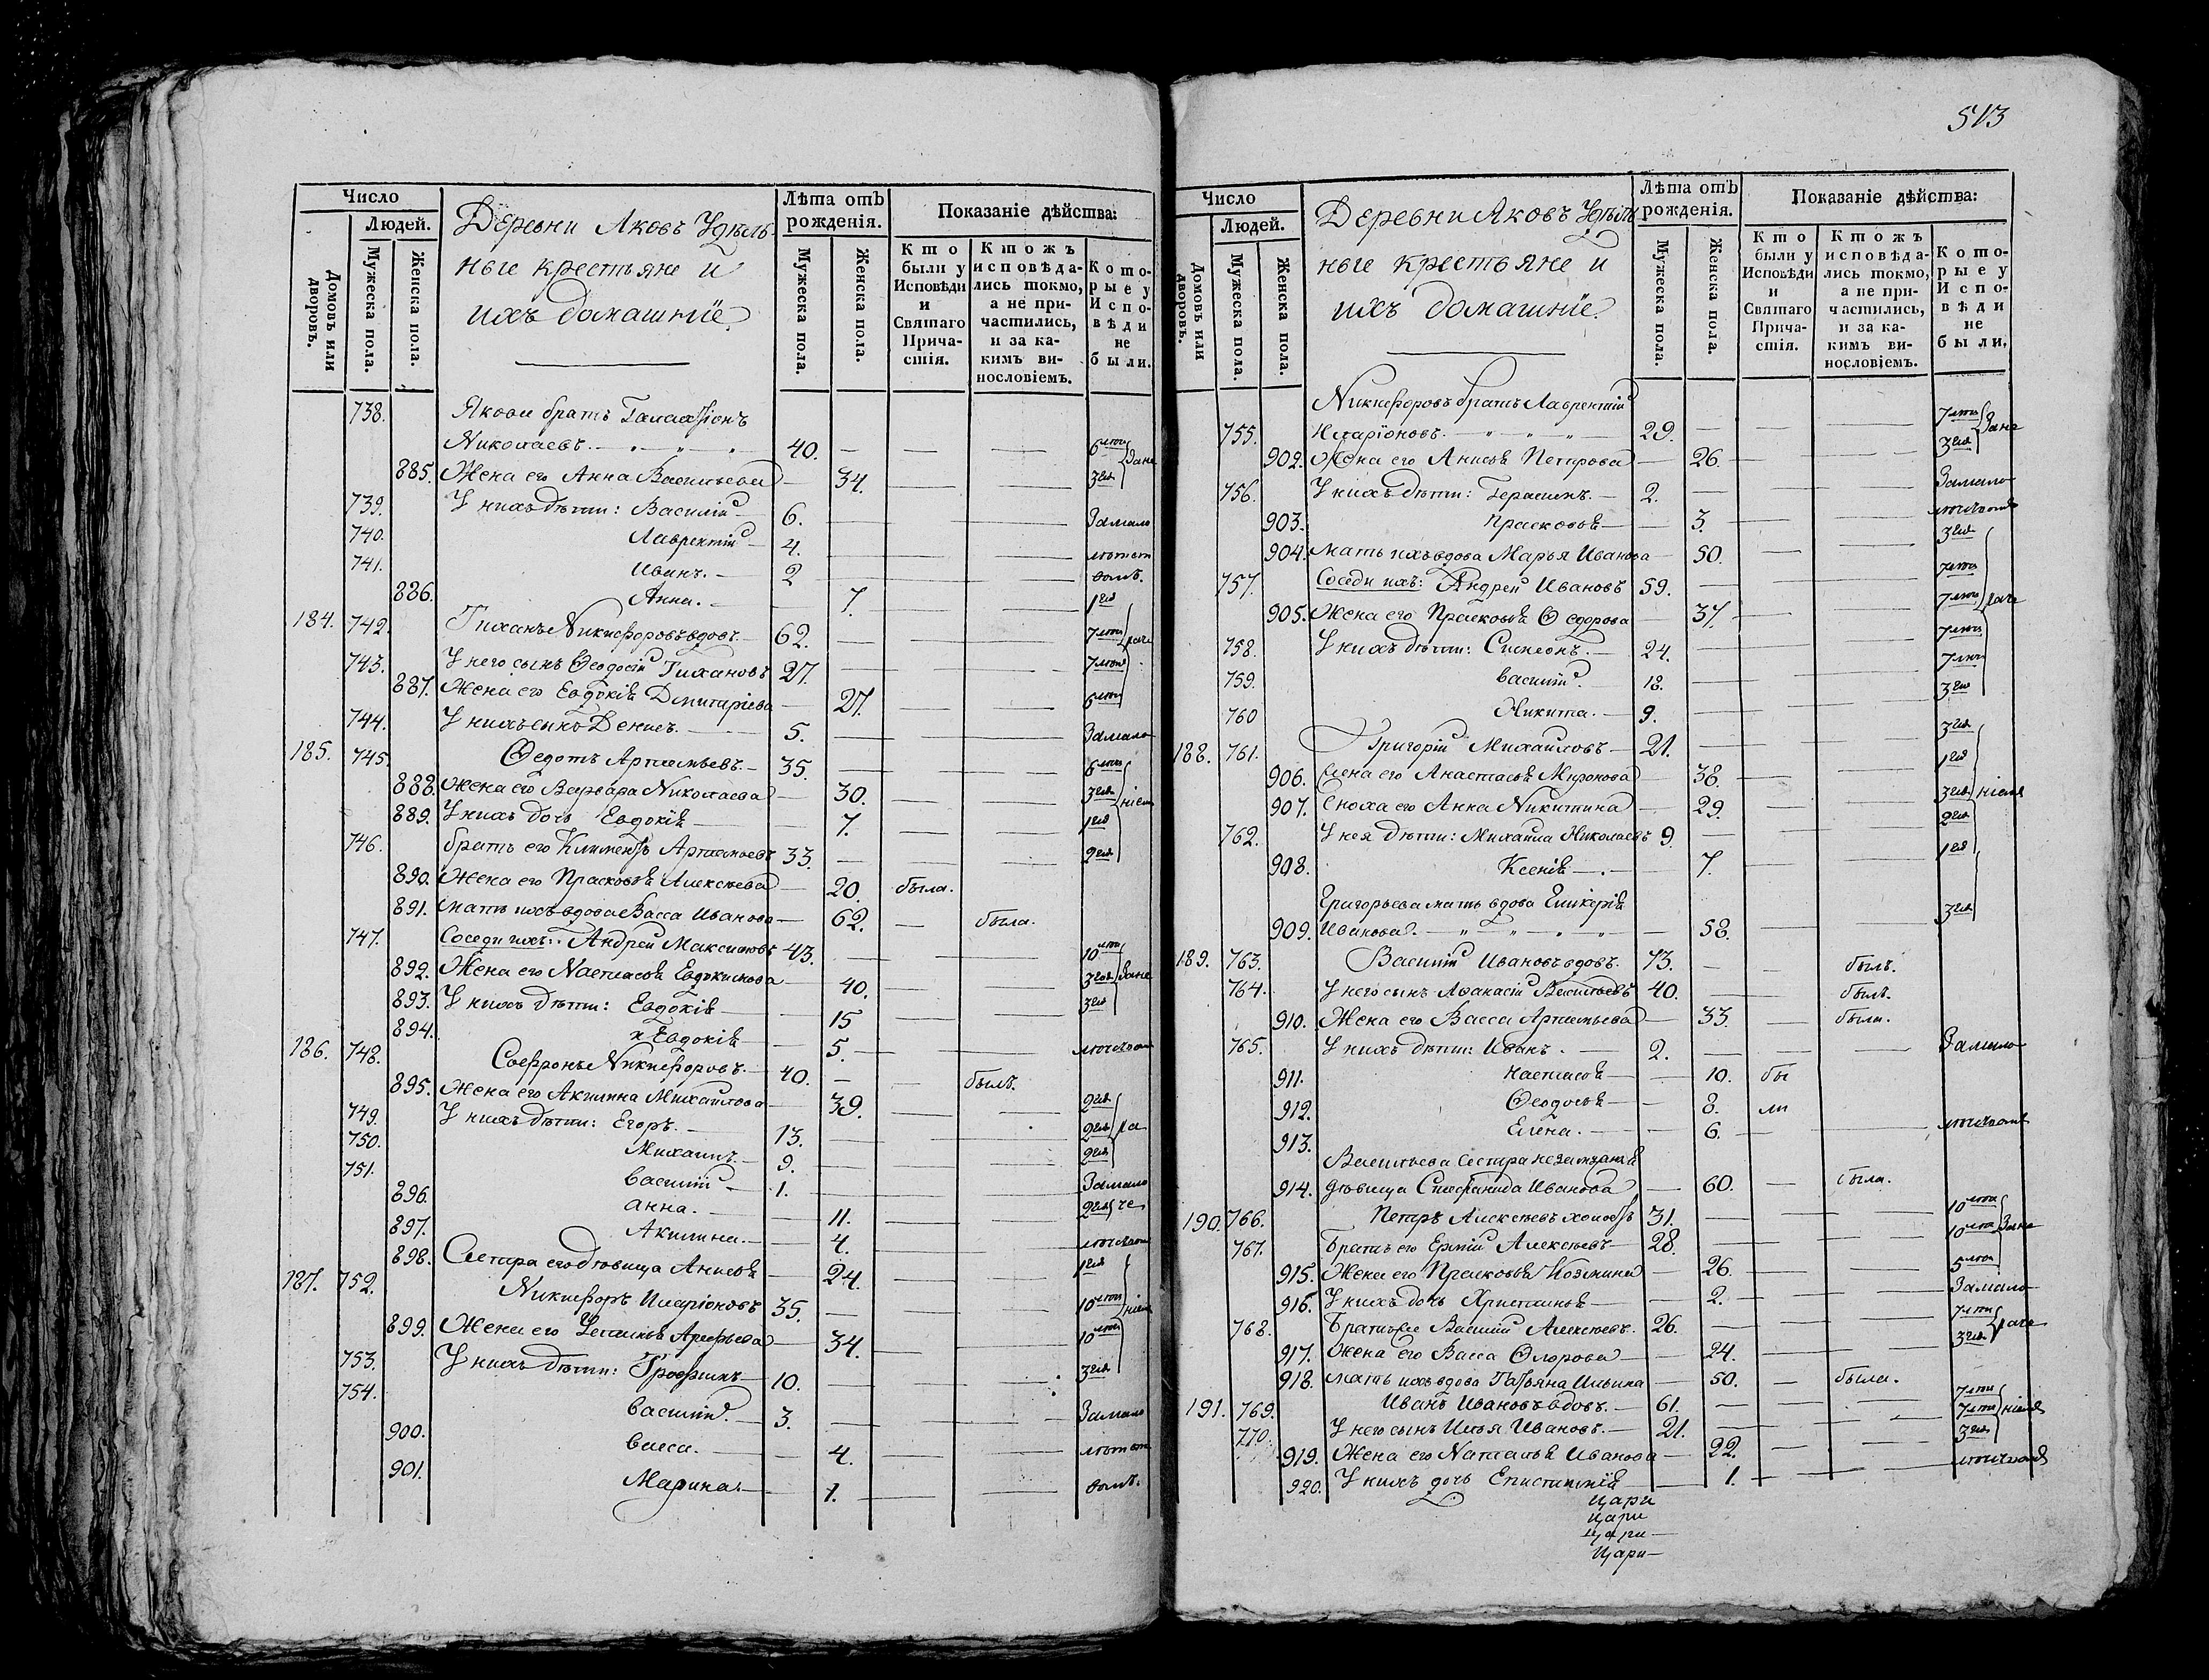 Число
Людей.
Домовъ или дворовъ.
Мужеска пола.
Женска пола.
Деревни Яковъ Удѣль-
ные крестьяне и
ихъ домашніе
Лѣта отъ рожденія.
Мужеска пола.
Женска пола.
Показаніе дѣйства:
Кто были у Исповѣди и Святаго Причастія.
Ктожъ исповѣдались токмо, а не причастились, и за какимъ винословіемъ.
Которые у Исповѣди не были.
738. Якова братъ
Николаевъ. 40. 6
885. Жена его Анна Васильева 34. 3
739. У нихъ дѣти: Василій 6. Замало
740. Лаврентій 4. лѣтст
741. Иванъ. 2 вомъ.
886. Анна. 7. 1
184. 742. Тиханъ Никифоровъ вдовъ. 62. 7
743. У него сынъ Ѳеодосій Тихановъ 27. 7
887. Жена его Евдокія Дмитріева 27. 6
744. У нихъ сынъ Денисъ. 5. Замало
185. 745. Ѳедотъ Артемьевъ. 35. 6
888. Жена его Варвара Николаева 30. 3
889. У нихъ дочь Евдокія 7. 1
746. братъ его Климентъ Артемьевъ 33. 2
890. Жена его Прасковья Алексѣева 20. была.
891. Мать ихъ вдова Васса Иванова 62. была.
747. Соседи ихъ: Андрей Максимовъ 43. 10
892. Жена его Настасья Евдокимова 40. 3
893. У нихъ дѣти: Евдокія 15 3
894. Евдокія 5.
186. 748. Софронъ Никифоровъ. 40. былъ.
895. Жена его Акилина Михайлова 39. 2
749. У нихъ дѣти: Егоръ. 13. 2
750. Михаилъ. 9. 2
751. Василій 1. Замало
896. Анна. 11. 2
897. Акилина. 4.
898. Сестра его дѣвица Анисья 24. 1
187. 752. Никифоръ Иларіоновъ 35. 10
899. Жена его Арефьева 34. 10
753. У нихъ дѣти: Трофимъ 10. 3
754. Василій. 3. Замало
900. Васса. 4. лѣтст
901. Марина. 1. вомъ.
513
Число
Людей.
Домовъ или дворовъ.
Мужеска пола.
Женска пола.
Деревни Яковъ Удѣль
ные крестьяне и
ихъ домашніе
Лѣта отъ рожденія.
Мужеска пола.
Женска пола.
Показаніе дѣйства:
Кто были у Исповѣди и Святаго Причастія.
Ктожъ исповѣдались токмо, а не причастились, и за какимъ винословіемъ.
Которые у Исповѣди не были.
Никифоровъ братъ Лаврентій
755. Иларіоновъ. 29. 7
902. Жена его Анисья Петрова 26. 3
756. У нихъ дѣти: Герасимъ. 2. Замало
903. Прасковья 3.
904. Мать ихъ вдова Марья Иванова 50. 3
757. Соседи ихъ: Андрей Ивановъ 59. 7
905. Жена его Прасковья Ѳедорова 37. 7
758. У нихъ дѣти: Симеонъ. 24. 7
759. Василій. 18. 7
760 Никита. 9. 3
188. 761. Григорій Михайловъ 21. 3
906. Жена его Анастасья Миронова 38. 1
907. Сноха его Анна Никитина 29. 3
762. У нея дѣти: Михаила Николаевъ 9. 2
908. Ксенія 7. 1
Григорьева мать вдова
909. Иванова. 58. 3
189. 763. Василій Ивановъ вдовъ. 73. былъ.
764. У него сынъ Аѳанасій Васильевъ 40. былъ.
910. Жена его Васса Артемьева 33. была.
765. У нихъ дѣти: Иванъ. 2. Замало
911. Настасья 10. бы
912. Ѳеодосья 8. ли
913. Елена. 6.
Васильева Сестра
914. дѣвица Стефанида Иванова 60. была.
190. 766. Петръ Алексѣевъ холостъ 31. 10
767. Братъ его Алексѣевъ 28. 10
915. Жена его Прасковья Козмина 26. 5
916. У нихъ дочь Христинья 2. Замало
768. Братъ Василій Алексѣевъ. 26. 7
917. Жена его Васса 24. 3
918. Мать ихъ вдова Татьяна Ильина 50. была.
191. 769. Иванъ Ивановъ вдовъ. 61. 7
770. У него сынъ Илья Ивановъ. 21. 7
919. Жена его Наталья Иванова 22. 3
920. У нихъ дочь Епистимія 1.
Цари
Цари
Цари
Цари